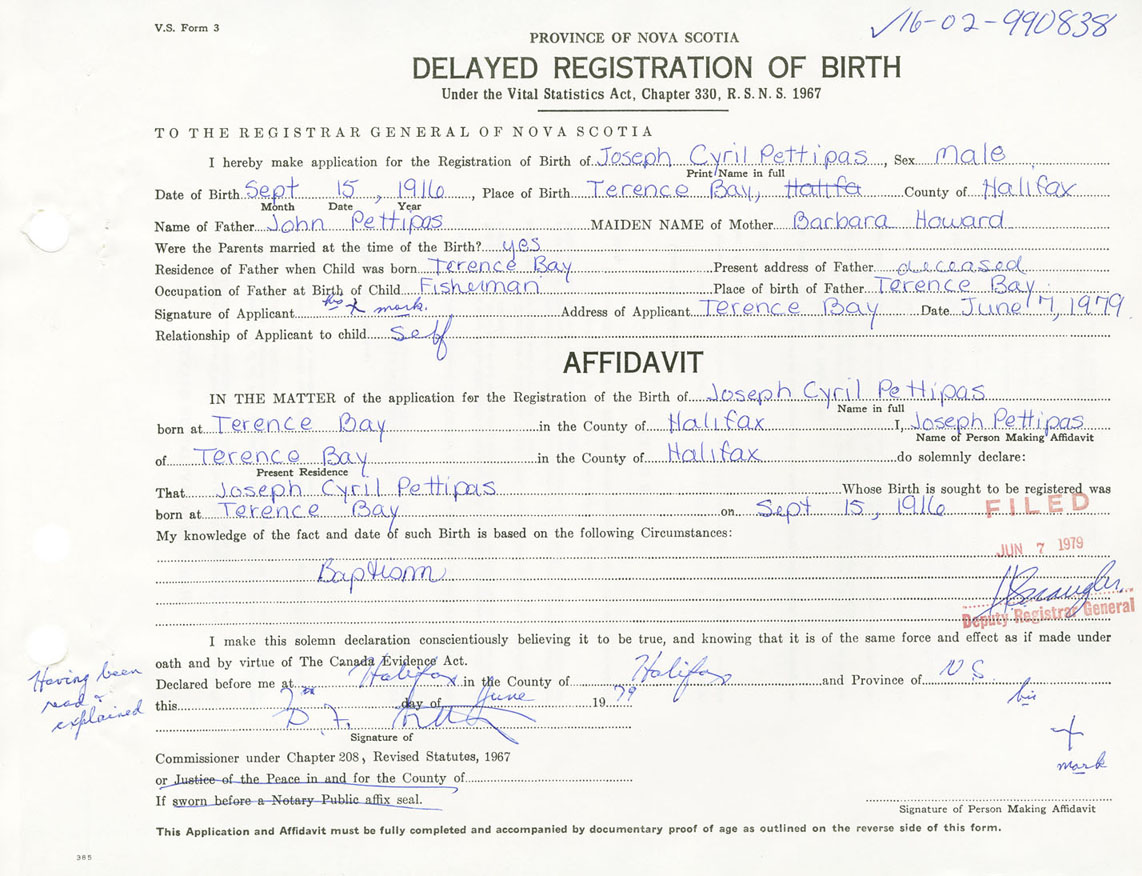 V.S. Form 3
✓16-02-990838
PROVINCE OF NOVA SCOTIA
DELAYED REGISTRATION OF BIRTH
Under the Vital Statistics Act, Chapter 330, R. S. N. S. 1967
TO THE REGISTRAR GENERAL OF NOVA SCOTIA
I hereby make application for the Registration of Birth of Joseph Cyril Pettipas, Sex Male
Print Name in full
Date of Birth Sept 15, 1916, Place of Birth Terence Bay, Halifa County of Halifax
Month Date Year
Name of Father John Pettipas MAIDEN NAME of Mother Barbara Howard
Were the Parents married at the time of the Birth? yes
Residence of Father when Child was born Terence Bay Present address of Father deceased
Occupation of Father at Birth of Child Fisherman Place of birth of Father Terence Bay
Signature of Applicant his x mark. Address of Applicant Terence Bay Date June 7, 1979
Relationship of Applicant to child self
AFFIDAVIT
IN THE MATTER of the application for the Registration of the Birth of Joseph Cyril Pettipas
Name in full
born at Terence Bay in the County of Halifax I, Joseph Pettipas
Name of Person Making Affidavit
of Terence Bay in the County of Halifax do solemnly declare:
Present Residence
That Joseph Cyril Pettipas Whose Birth is sought to be registered was
born at Terence Bay on Sept 15, 1916
FILED
My knowledge of the fact and date of such Birth is based on the following Circumstances:
JUN 7 1979
Baptism
Deputy Registrar General
I make this solemn declaration conscientiously believing it to be true, and knowing that it is of the same force and effect as if made under
oath and by virtue of The Canada Evidence Act.
Having been read & explained
Declared before me at Halifax in the County of Halifax and Province of N.S.
this 7th day of June 1979
his + mark
D. F.
Signature of
Commissioner under Chapter 208, Revised Statutes, 1967
or Justice of the Peace in and for the County of
If sworn before a Notary Public affix seal.
Signature of Person Making Affidavit
This Application and Affidavit must be fully completed and accompanied by documentary proof of age as outlined on the reverse side of this form.
385